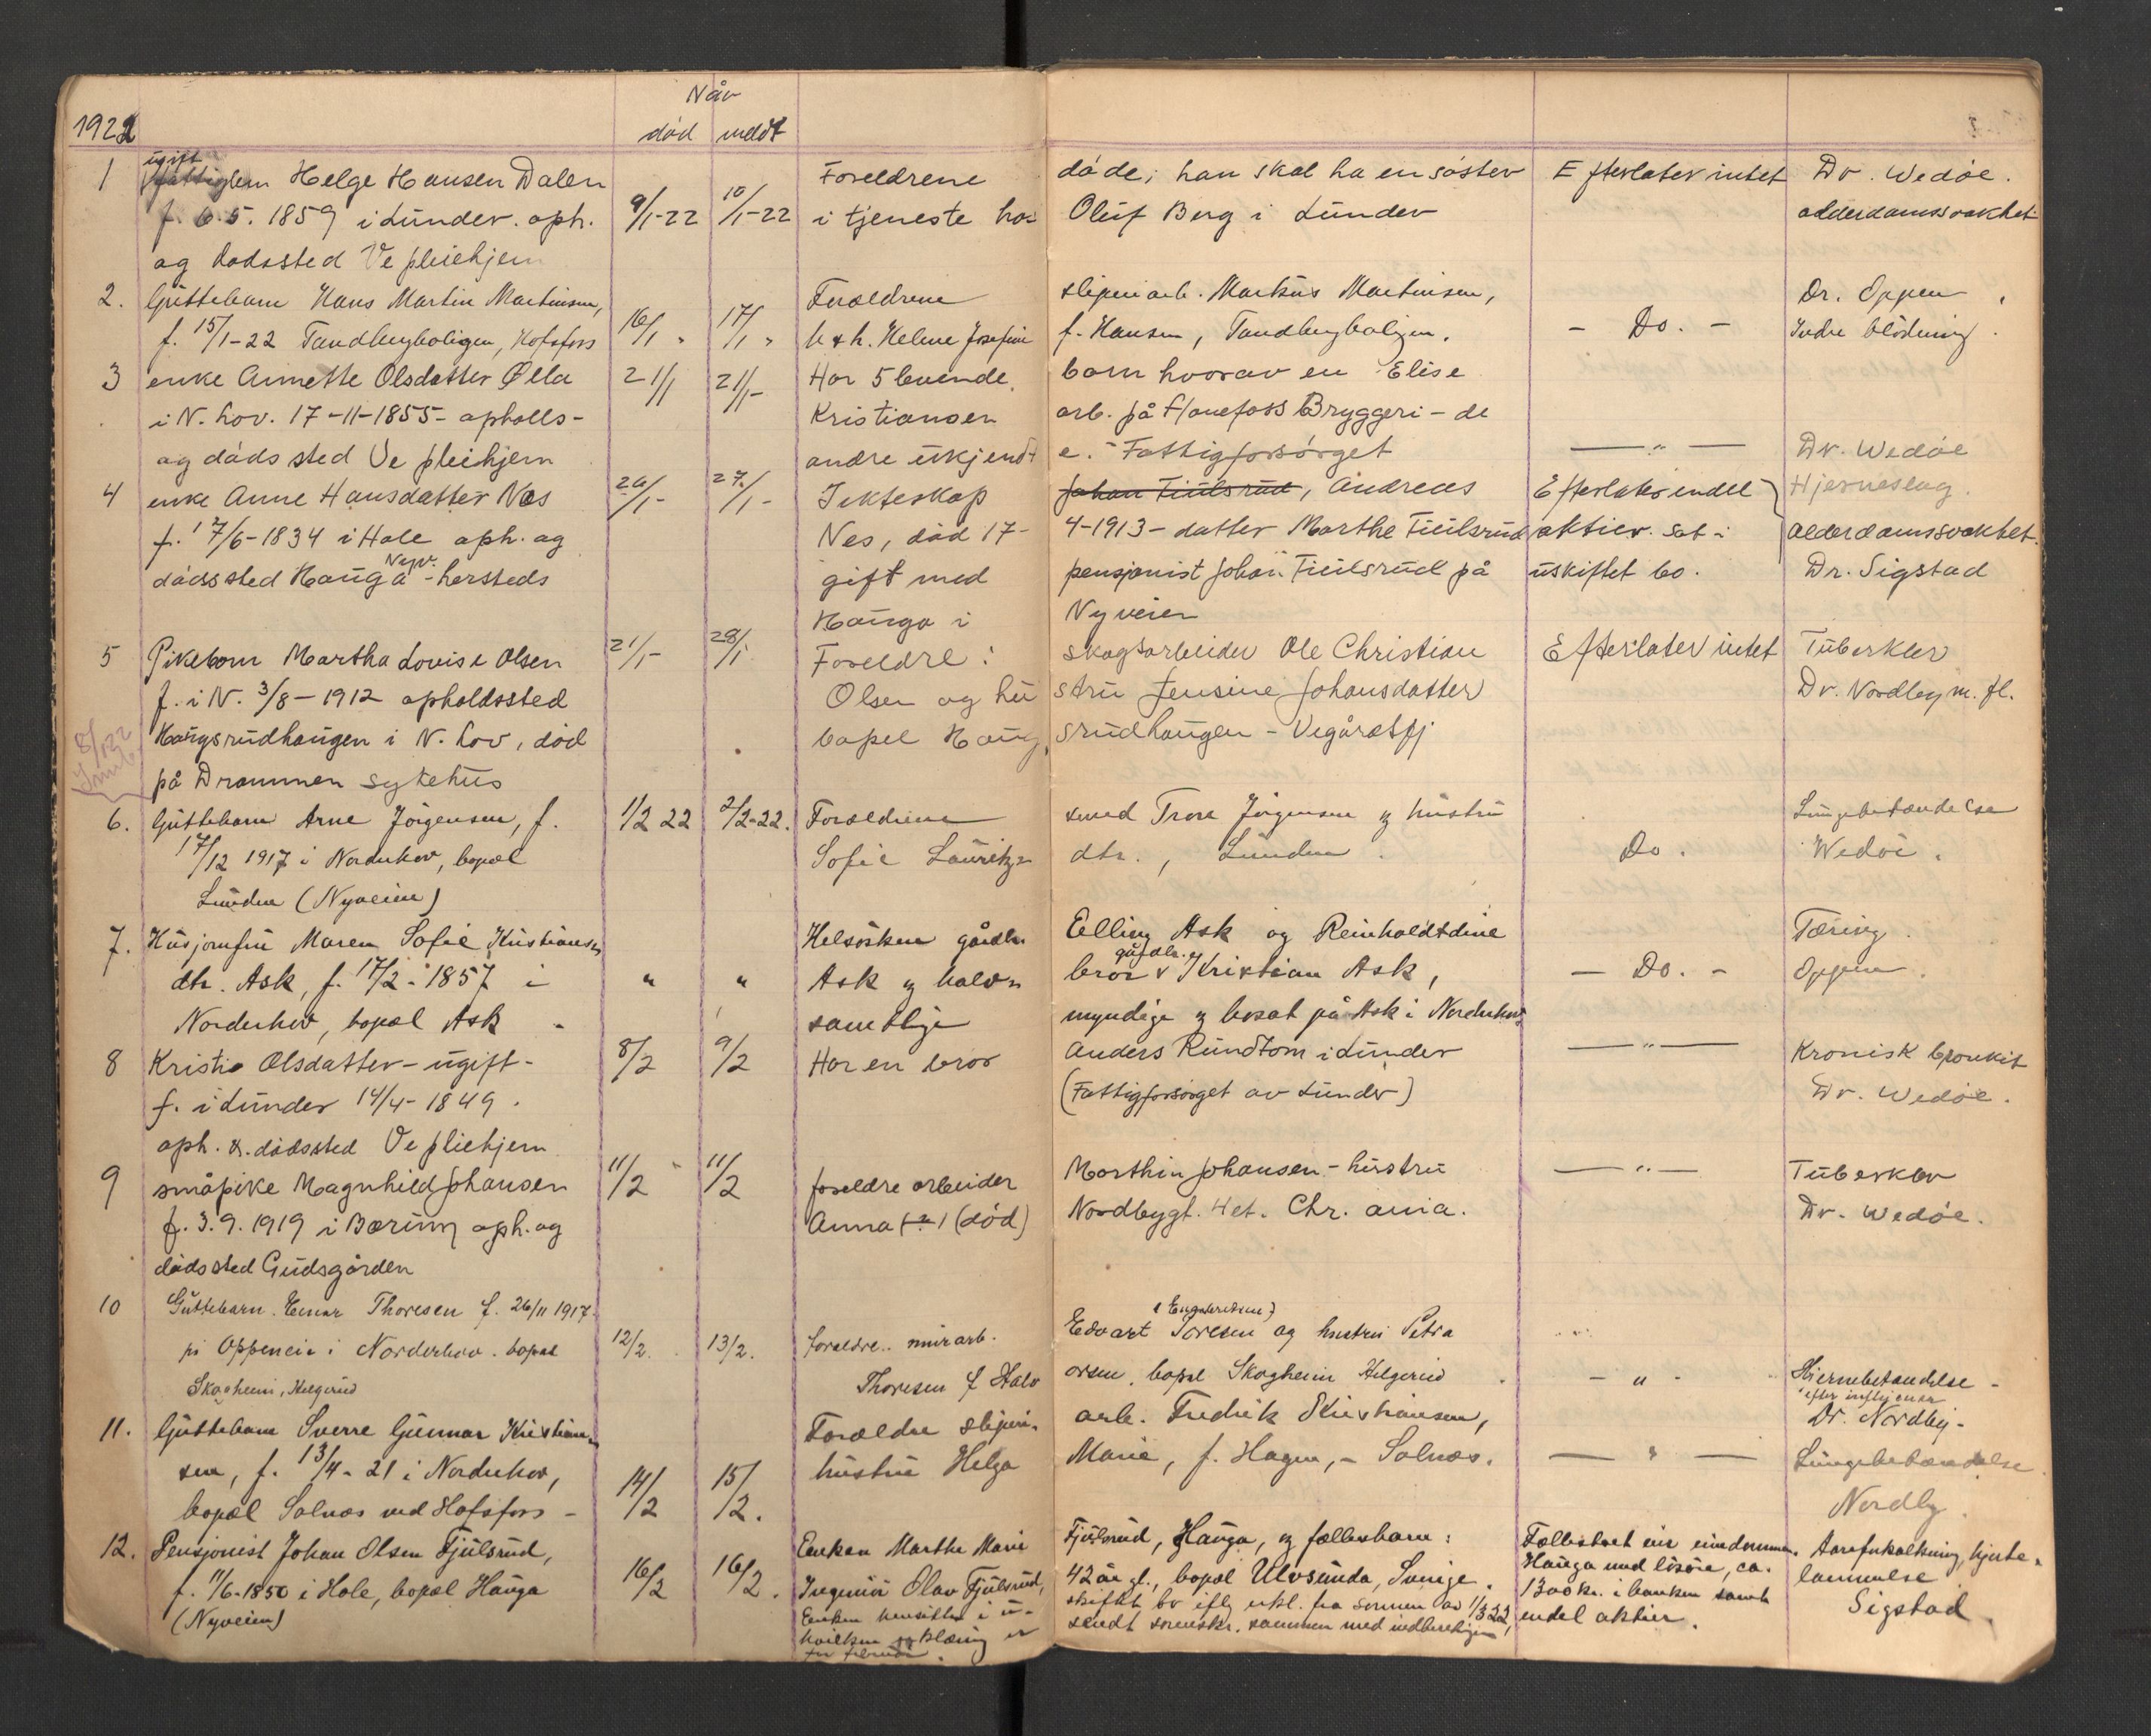 1922
Når
død meldt
1 ugift fattiglem Helge Hansen Dalen 9/1-22 10/1-22 Foreldrene døde; han skal ha en søster Efterlater intet Dr. Wedøe.
f. 6.5. 1859 i Lunder. oph. i tjeneste hos Oluf Berg i Lunder alderdomssvakhet
og dødssted Ve pleiehjem
2. Guttebarn Hans Martin Martinsen, 16/1 " 17/1 " Forældrene sliperiarb. Markus Martinsen, - Do. - Dr. Oppen
f. 15/1-22 Tandbergboligen, Hofsfoss h & h. Helene Josefine f. Hansen, Tandbergboligen. Indre blödning.
3 enke Annette Olsdatter Ølla 21/1 21/1- Har 5 levende barn hvorav en Elise
i N. hov. 17-11-1855- opholls- Kristiansen arb. på Hønefoss Bryggeri - de
og døds sted Ve pleihjem andre ukjendt e. Fattigforsørget — " — Dr. Wedøe
Hjerneslag.
4 enke Anne Hansdatter Næs 26/1- 27/1- Jekteskap Johan Fiulsrud, Andreas Efterlater endel
f. 17/6-1834 i Hole oph. og Nes, død 17- 4-1913- datter Marthe Fiulsrud aktier. sat i alderdomssvakhet.
dødssted Hauga Nyv. -hersteds gift med pensjonist Johan Fiulsrud på uskiftet bo. Dr. Sigstad
Hauga i Nyveien
5 Pikebarn Martha Lovise Olsen 21/1- 28/1 Foreldre: skogsarbeider Ole Christian Efterlater intet Tuberkler
f. i N. 3/8-1912 opholdssted Olsen og hu stru Jensine Johansdatter Dr. Nordby m. fl.
Haugsrudhaugen i N. hov, død bopel Haug srudhaugen - Vegårdsfj
på Drammen sykehus
8/1 22
6. Guttebarn Arne Jörgensen, f. 1/2 22 2/2-22. Forældrene smed Trore Jörgensen og hustru Lungebetændelse
17/12 1917 i Norderhov, bopæl Sofie Lauritz- dtr., Lunden. Do. Wedöe.
Lunden (Nyveien)
7. Husjomfru Maren Sofie Kristians- " " Helsösken gårdbr. Elling Ask og Reinholdtdine Tæring.
dtr. Ask, f. 17/2-1857 i Ask og halv- bror gårdbr. Kristian Ask, - Do. - Oppen.
Norderhov, bopæl Ask samtlige myndige og bosat på Ask i Norderhov
8 Kristie Olsdatter - ugift - 8/2 9/2 Har en bror Anders Rundtom i Lunder — " — Kronisk bronkit
f. i Lunder 14/4-1849. (Fattigforsörget av Lunder) Dr. Wedøe.
oph. & dødssted Ve pliehjem
9 småpike Magnhild Johansen 11/2 11/2 foreldre arbeider Marthin Johansen - hustru — " — Tuberkler
f. 3.9.1919 i Bærum oph. og Anna (død) Nordbygt. 4 et. Chr. ania. Dr. Wedøe.
dødssted Gudsgården
10 Guttebarn Einar Thoresen f. 26/11 1917 12/2. 13/2. foreldre. murarb. Edvart Toresen (Engebretsen) og hustru Petra
på Oppeneie i Norderhov. bopæl Thoresen f. Halv orsen, bopæl Skogheim Helgerud - " - Hjernebetændelse -
Skogheim, Helgerud efter influensa
Dr. Nordby -
11. Guttebarn Sverre Gunnar Kristian- 14/2 15/2. Forældre sliperi- arb. Fredrik Kristiansen,
sen, f. 13/4-21 i Norderhov, hustru Helga Marie, f. Hagen, - Solnæs. — " — Lungebetændelse.
bopæl Solnæs ved Hofsfoss - Nordby
12. Pensjonist Johan Olsen Fjulsrud, 16/2 16/2. Enken Marthe Marie Fjulsrud, Hauga, og fællesbarn: Fællesboet eier eiendommen Aareforkalkning, hjerte-
f. 11/6-1850 i Hole, bopæl Hauga Ingeniör Olav Fjulsrud, 42 år gl., bopæl Ulvsunda, Sverige. Hauga med lösöre, ca. lammelse
(Nyveien) Enken hensitter i u- skiftet bo iflg erkl. fra sönnen av 1/3 22, 1300 kr. i banken samt Sigstad
hvilken erklæring er sendt sorenskr. sammen med indberetningen endel aktier.
for februar.